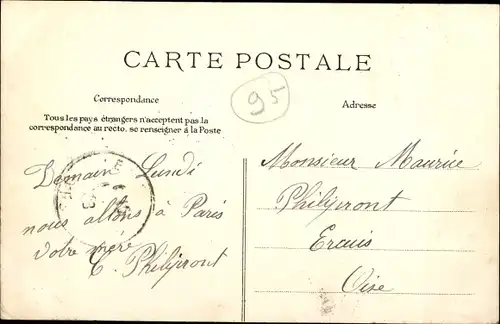 CARTE POSTALE
Correspondance
95
Adresse
Tous les pays étrangers n'acceptent pas la
correspondance au recto. se renseigner à la Poste
Demain Lundi
nous allons à Paris
votre mère
C. Philippront
Monsieur Maurice
Philippront
Ercuis
Oise